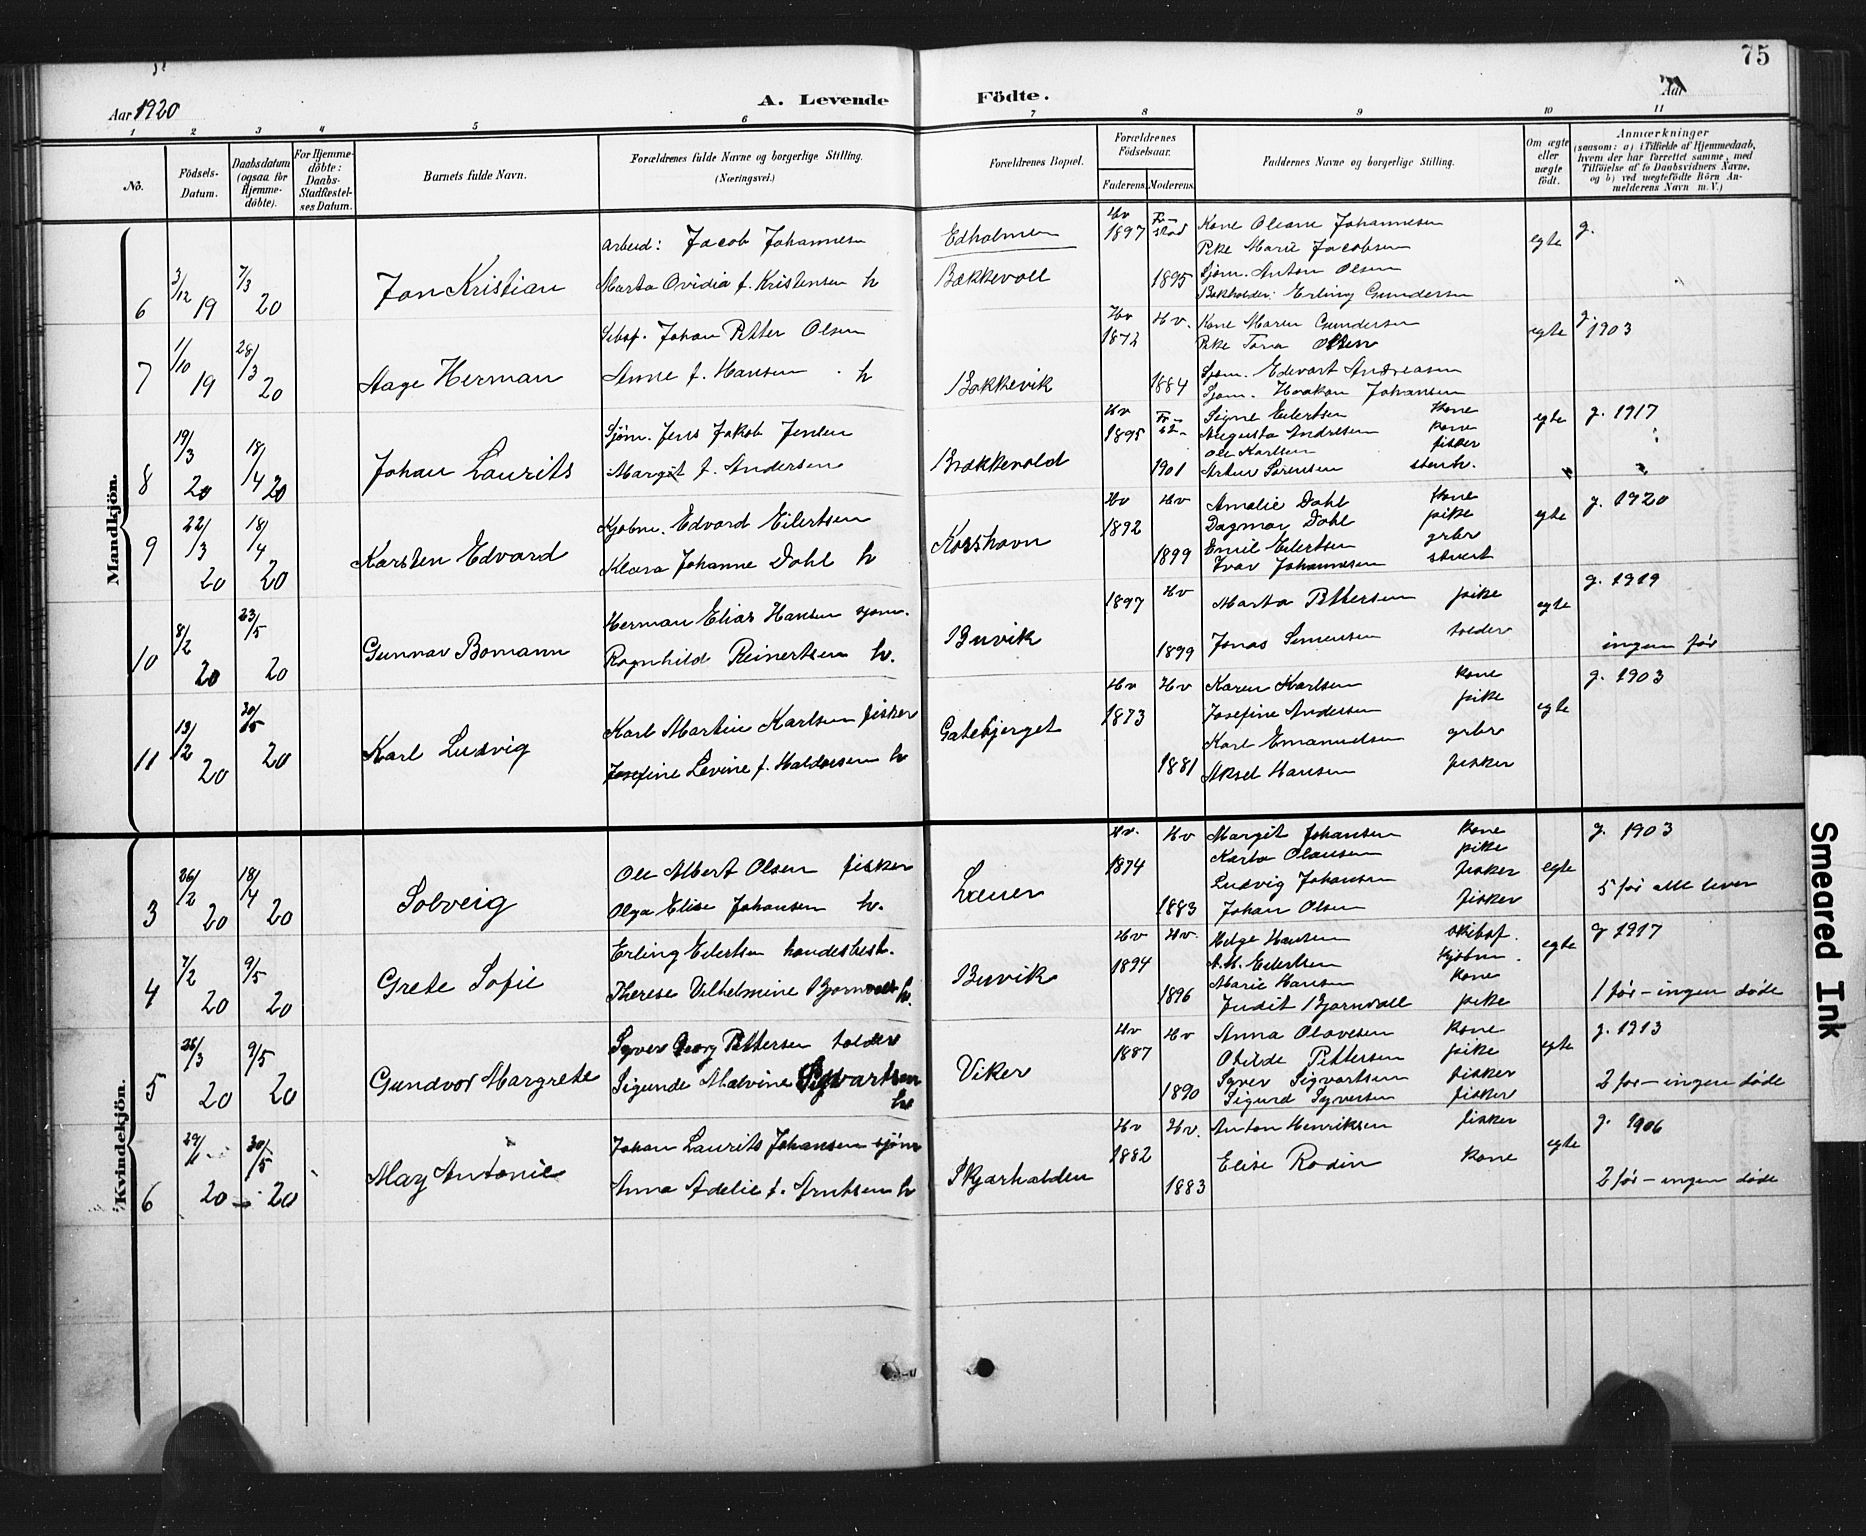 75
Aar 1920
A. Levende Födte.
Aar
1 2 3 4 5 6 7 8 9 10 11
No.
Födsels-Datum.
Daabsdatum (ogsaa for Hjemme-döbte).
For Hjemme-döbte: Daabs-Stadfæstel-ses Datum.
Barnets fulde Navn.
Forældrenes fulde Navne og borgerlige Stilling. (Næringsvei.)
Forældrenes Bopæl.
Forældrenes Födselsaar.
Faderens. Moderens.
Faddernes Navne og borgerlige Stilling.
Om ægte eller uægte födt.
Anmærkninger
(saasom: a) i Tilfælde af Hjemmedaab, hvem der har forrettet samme, med Tilföielse af to Daabsvidners Navne, og b) ved uægtefödte Börn An-melderens Navn m. V.)
Mandkjön.
6 3/12 19 7/3 20 Jon Kristian
Arbeid: Jacob Johannesen
Marta Ovidia f. Kristensen h
Edholmen
Bækkevoll
Hv 1897 Fr-stad 1895
Kone Oleane Johannesen
Pike Marie Jacobsen
Sjøm. Anton Olsen
Bokholder: Erling Gundersen
egte g.
7 1/10 19 28/3 20 Aage Herman
Johan Petter Olsen
Anne f. Hansen h
Bækkevik
Hv 1872 Hv. 1884
Kone Maren Gundersen
Pike Tora Olsen
Sjøm. Edevart Andreasen
Sjøm. Haakon Johansen
egte g. 1903
8 19/3 20 18/4 20 Johan Laurits
Sjøm. Jens Jakob Jensen
Margit f. Andersen
Bækkevold
Hv 1895 Fr- 1901
Signe Eilertsen kone
Augusta Andresen kone
Ole Karlsen fisker
Artur Sørensen stenh.
egte g. 1917
9 22/3 20 18/4 20 Karsten Edvard
Kjøbm. Edvard Eilertsen
Klara Johanne Dahl h
Korshavn
Hv 1892 Hv 1899
Amalie Dahl kone
Dagmar Dahl pike
Emil Eilertsen grbr
Ivar Johannesen stuert
egte g. 1920
10 8/2 20 23/5 20 Gunnar Bomann
Herman Elias Hansen sjøm.
Ragnhild Reinertsen h.
Buvik
1897 Hv 1899
Marta Pettersen pike
Jonas Simensen tolder
egte g. 1919
ingen før
11 13/2 20 30/5 20 Karl Ludvig
Karl Martin Karlsen fisker
Josefine Levine f. Haldorsen h
Gatebjerget
Hv 1873 Hv 1881
Karen Karlsen kone
Josefine Andersen pike
Karl Emanuelsen grbr
Aksel Hansen fisker
egte g. 1903
Kvindekjön.
3 26/2 20 18/4 20 Solveig
Ole Albert Olsen fisker
Olga Elise Johansen h.
Lauer
Hv. 1874 Hv 1883
Margit Johansen kone
Karla Olausen pike
Ludvig Johansen fisker
Johan Olsen fisker
egte g. 1903
5 før alle lever
4 7/2 20 9/5 20 Grete Sofie
Erling Eilertsen handelsbest.
Therese Vilhelmine Bjørnvall h.
Buvik
Hv 1894 Hv. 1896
Helge Hansen skibsf.
A.H. Eilertsen kjøbm.
Marie Hansen kone
Judit Bjørnvall pike
egte g 1917
1 før – ingen døde
5 26/3 20 9/5 20 Gundvor Margrete
Syver Georg Pettersen tolder
Sigunde Malvine Sigvartsen h
Viker
Hv 1887 Hv 1890
Anna Olavesen kone
Otilde Pettersen pike
Syver Sigvartsen fisker
Sigurd Syversen fisker
egte g. 1913
2 før – ingen døde
6 20 30/5 20 May Antonie
Johan Laurits Johansen sjøm
Anna Adelie f. Arntsen h
Skjærhalden
Hv 1882 Hv. 1883
Anton Henriksen fisker
Elise Rodin kone
egte g. 1906
2 før – ingen døde
Smeared Ink